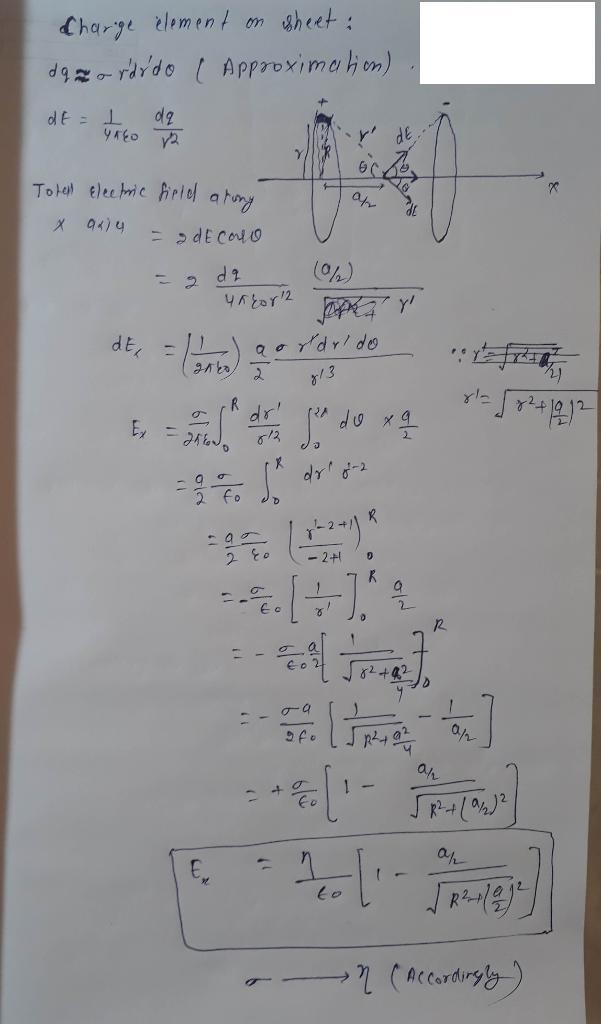 Charge element on sheet :
dq ≈ σ r'dr'dθ ( Approximation) .
dE = 1/4πε0 dq/r²
+ -
r R r' dE θ θ θ dE a/2 x
Total electric field along
x axis = 2dE cosθ
= 2 dq/4πε0r'² (a/2)/r'
dEx = (1/2πε0) a/2 σ r'dr'dθ/r'³
r' = √r²+(a/2)²
Ex = σ/2πε0 ∫0^R dr'/r'² ∫0^2π dθ × a/2
= a/2 σ/ε0 ∫0^R dr' r'-2
= a/2 σ/ε0 (r'-2+1/-2+1)0^R
= -σ/ε0 [1/r']0^R a/2
= - σ/ε0 a/2 [1/√r²+a²/4]0^R
= - σa/2ε0 [1/√R²+a²/4 - 1/a/2]
= + σ/ε0 [1 - a/2/√R²+(a/2)²]
Ex = η/ε0 [1 - a/2/√R²+(a/2)²]
σ ⟶ η (Accordingly)